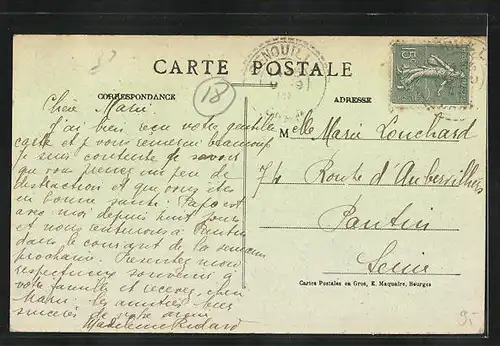 CARTE POSTALE
NOUIL
18
15c
CORRESPONDANCE
ADRESSE
Chère Marie
J'ai bien reçu votre gentille
carte et vous remercie beaucoup
je suis contente de savoir
que vous prenez un peu de
distraction et que vous êtes
en bonne santé. Papa est
avec moi depuis huit jours
et nous rentrerons à Pantin
dans le courant de la semaine
prochaine. Présentez mon
respectueux souvenir à
votre famille et recevez, chère
Marie, les amitiés bien
sincères de votre amie
Madeleine
Melle Marie Louchard
74 Route d'Aubervilliers
Pantin
Seine
Cartes Postales en Gros, E. Maquaire, Bourges
9.-